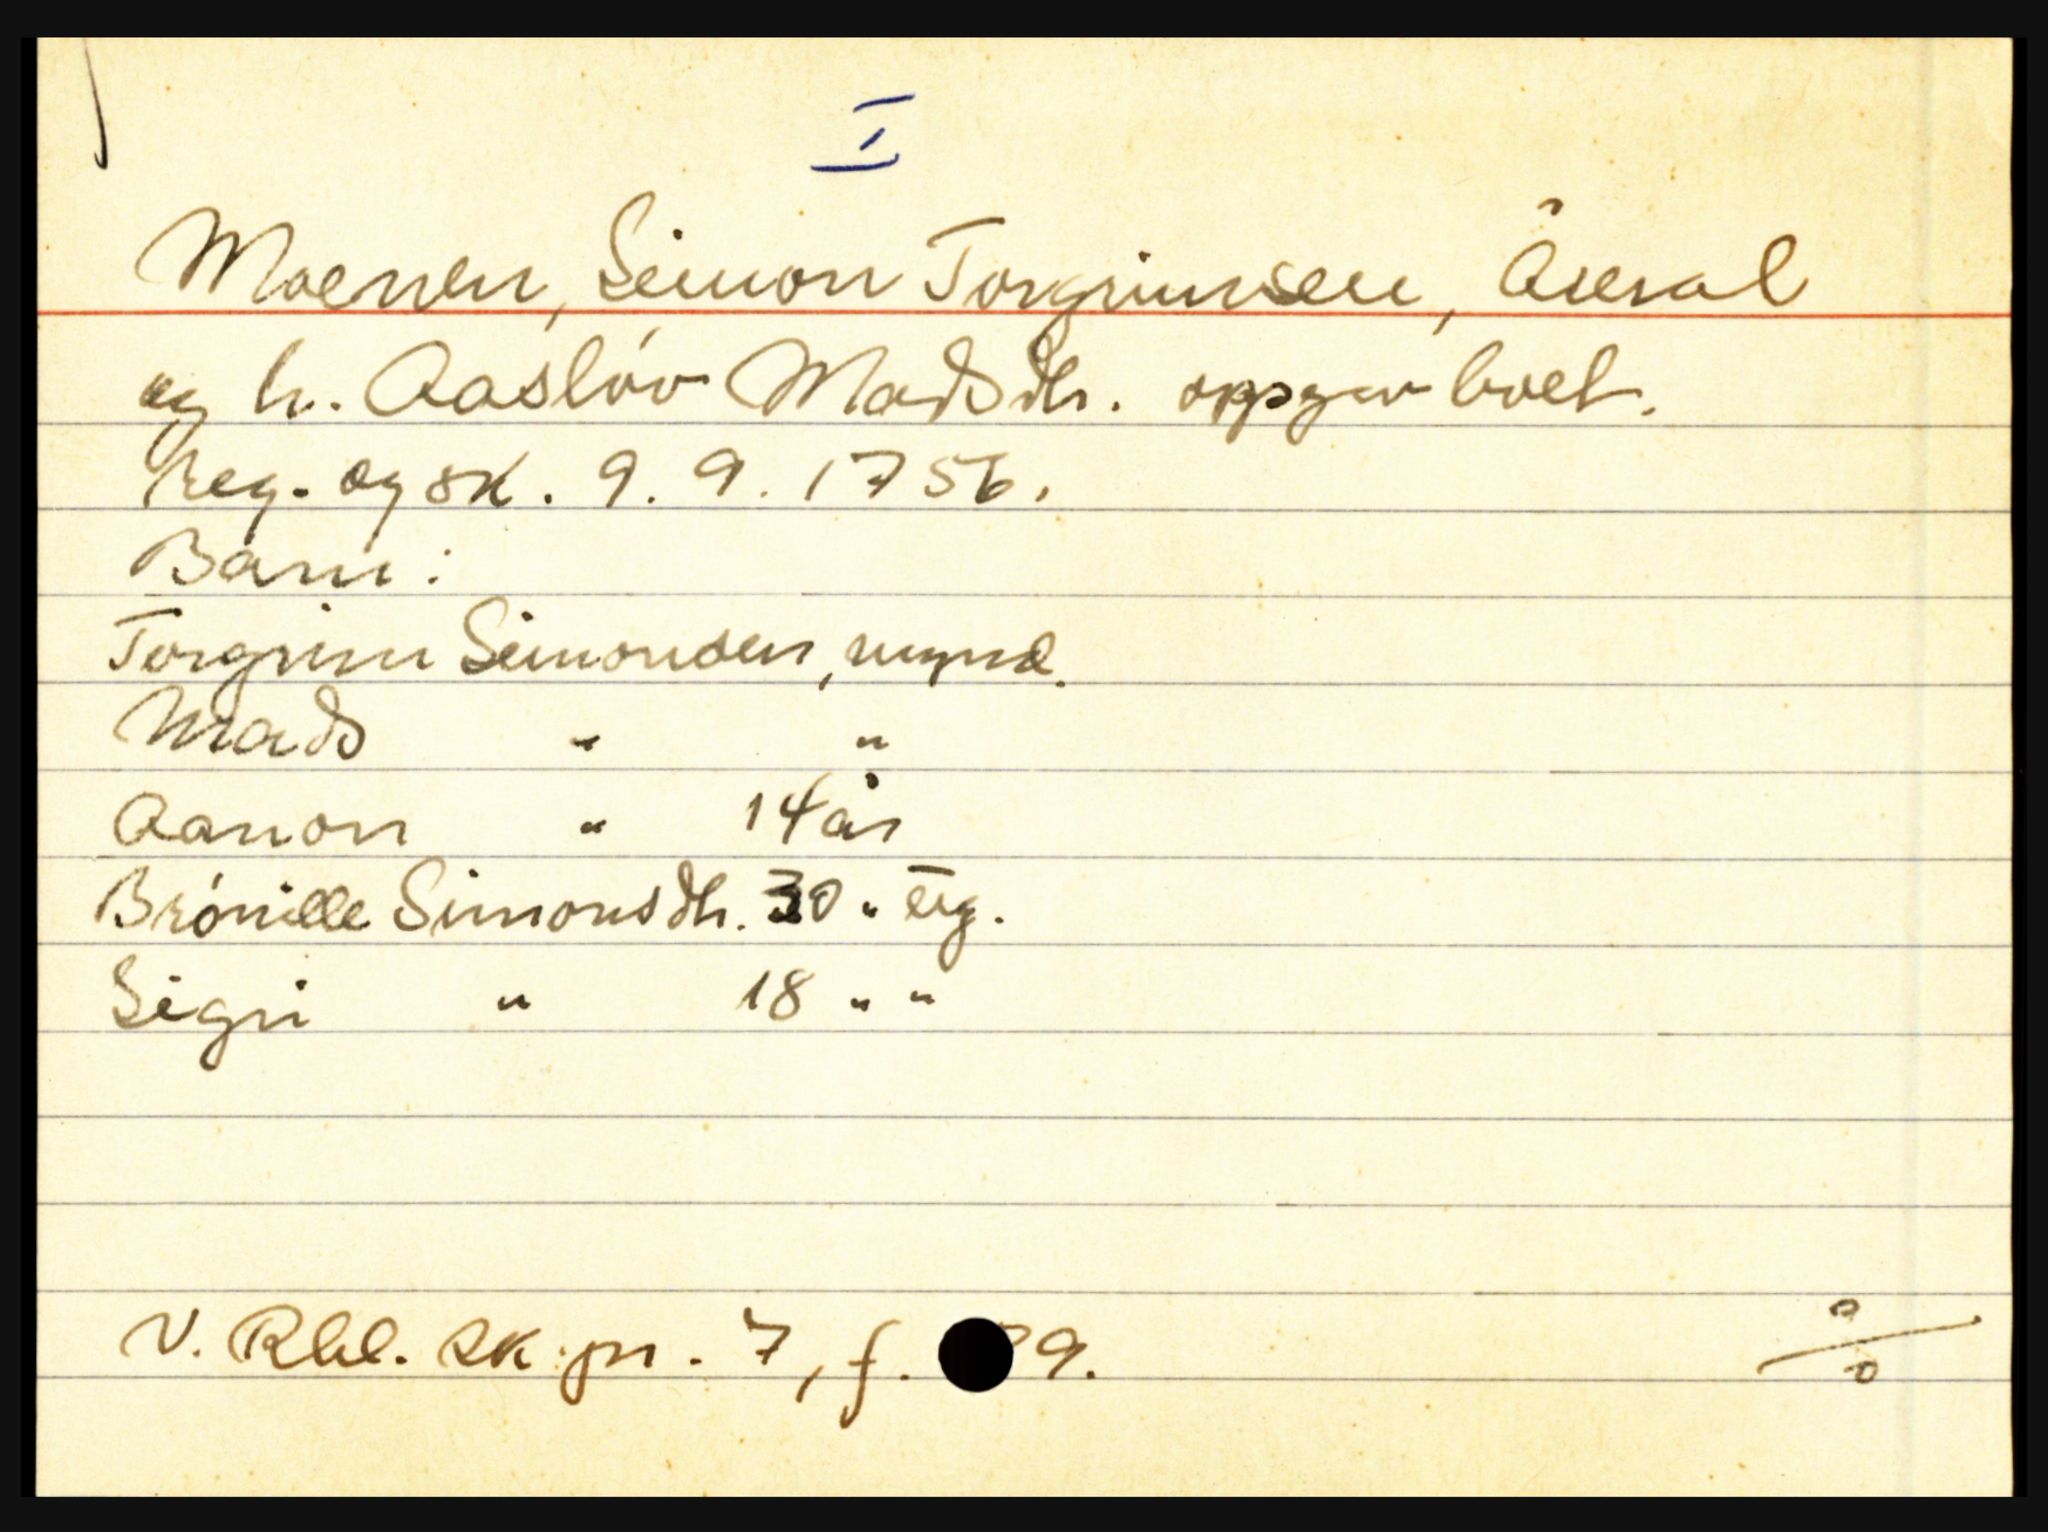 I
Moenen, Simon Torgrimsen, Åseral
og h. Aasløv Madsdtr. oppgav boet.
Reg. og sk. 9. 9. 1756.
Barn:
Torgrim Simonsen, mynd.
Mads " "
Aanon " 14 år
Brønille Simonsdtr. 30 " ug.
Sigri " 18 " "
V. Rbl. sk.pr. 7, f. 9.
0/0